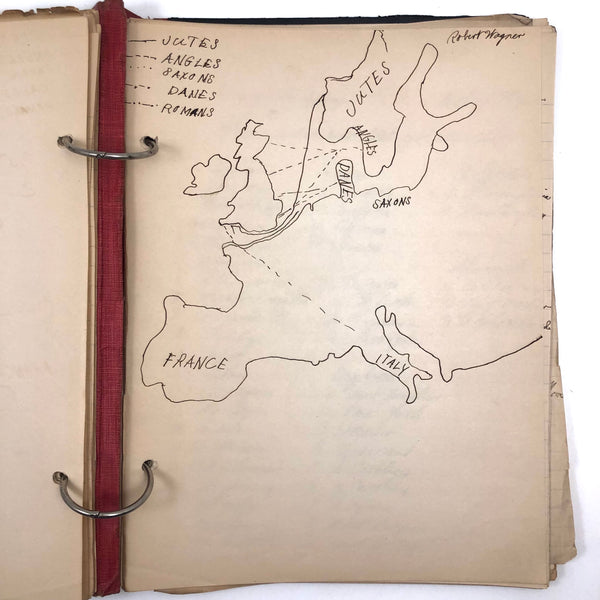 Robert Wagner
JUTES
ANGLES
SAXONS
DANES
ROMANS
JUTES
ANGLES
DANES
SAXONS
FRANCE
ITALY